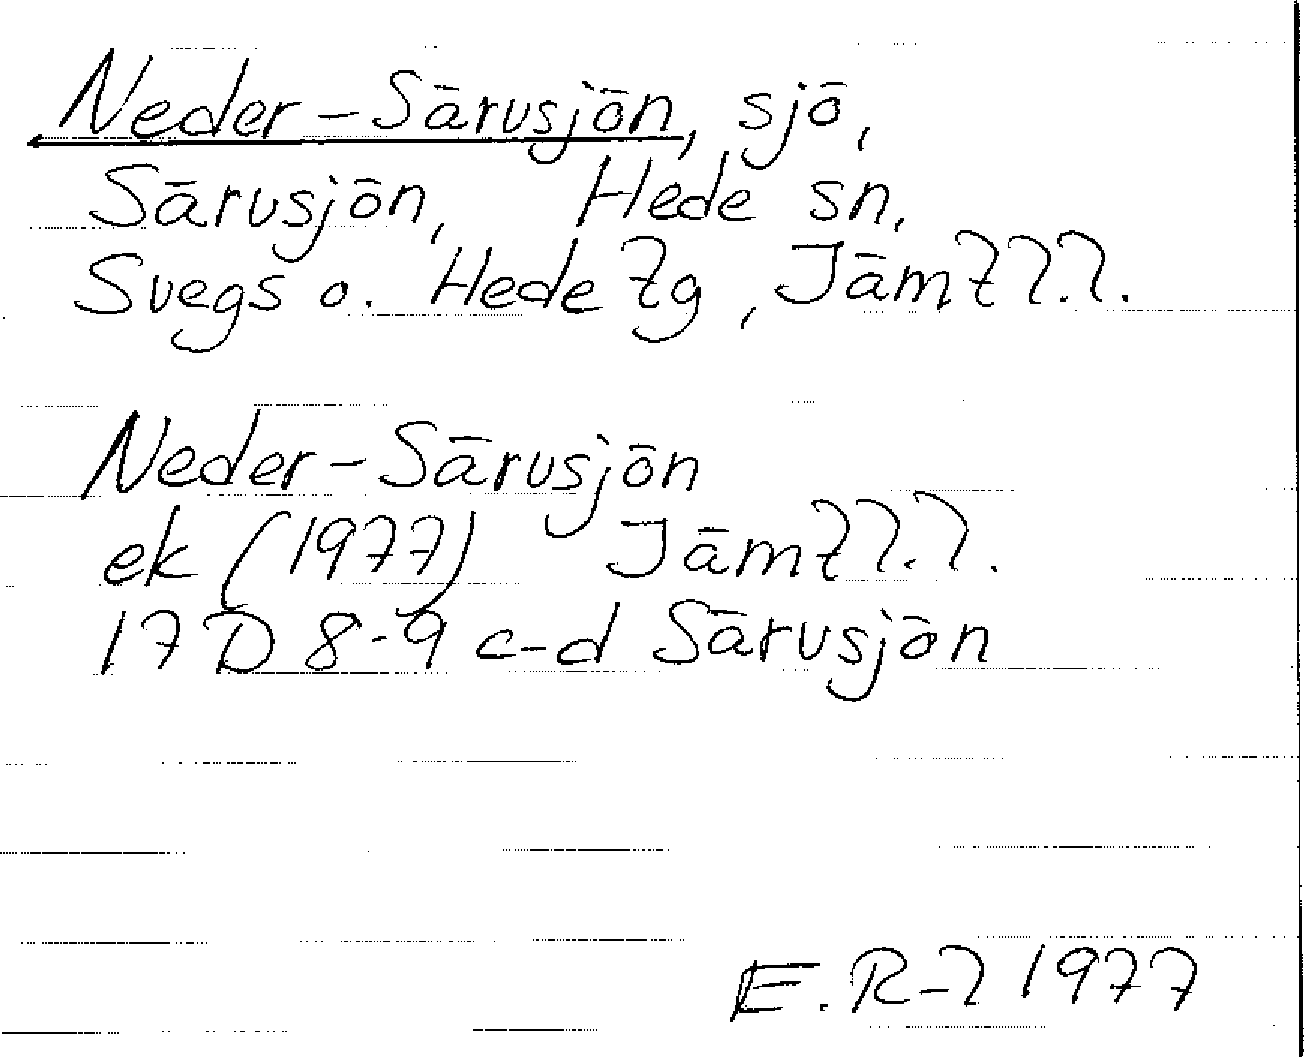 Neder-Särusjön, sjö,
Särusjön, Hede sn,
Svegs o. Hede tg, Jämtl.l.
Neder-Särusjön
ek (1977) Jämtl.l.
17 D 8-9 c-d Särusjön
E.R-l 1977